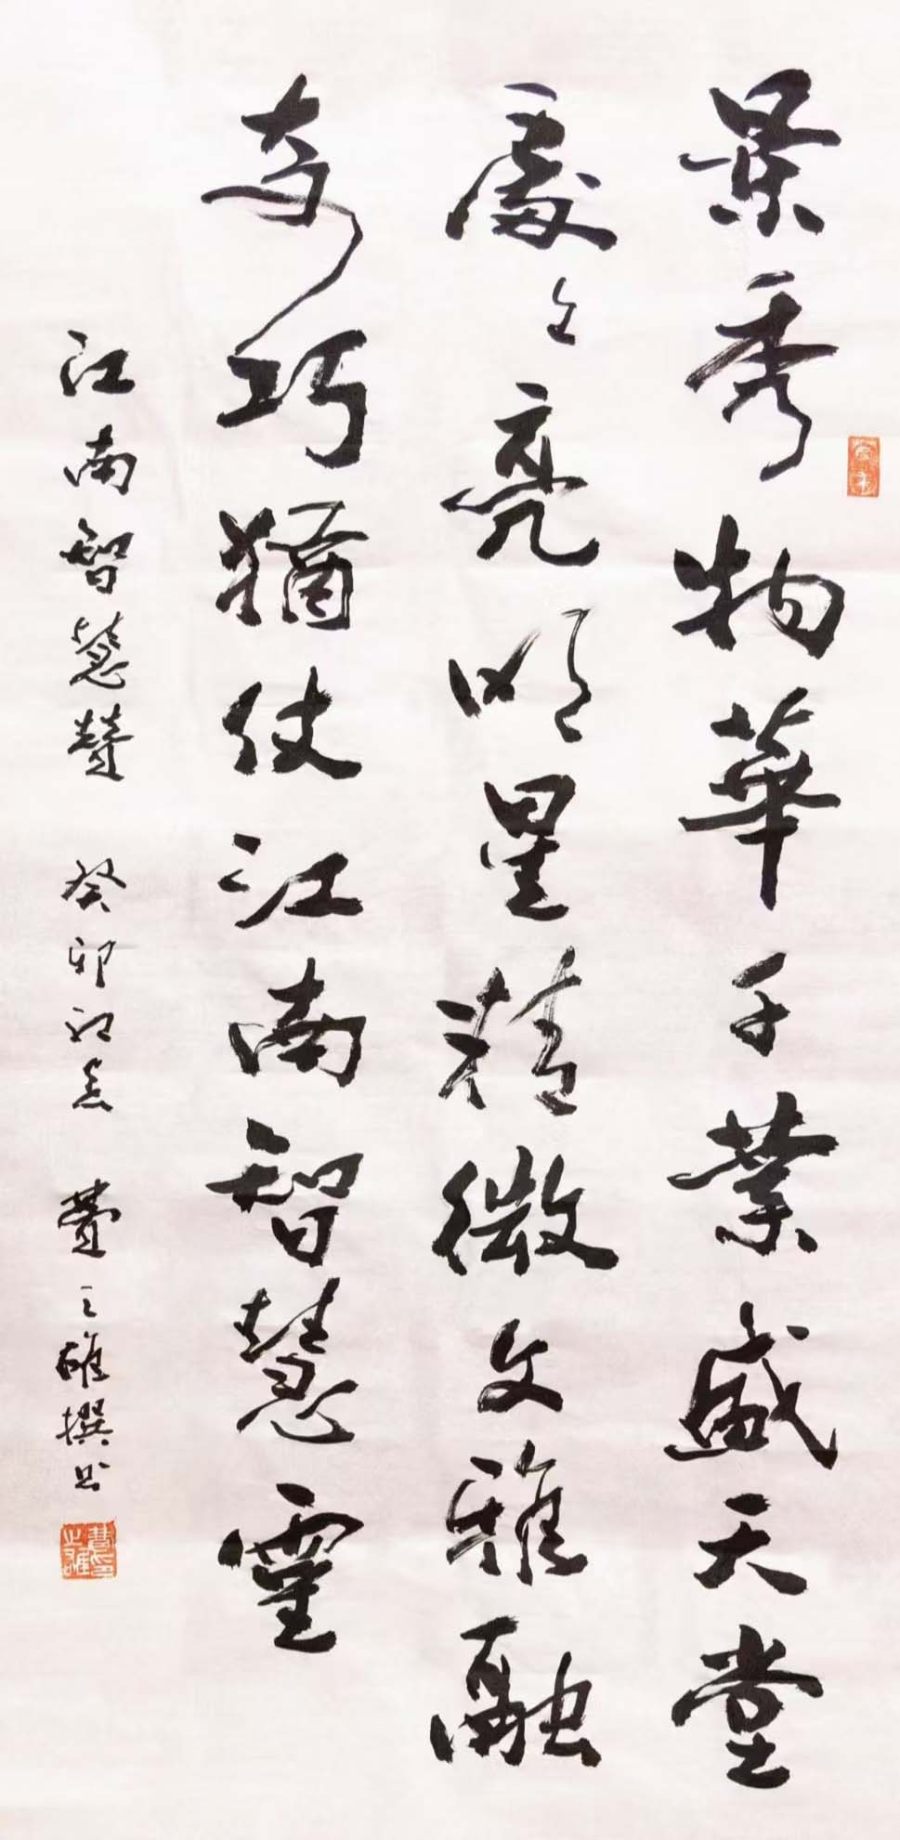 景秀物華千業盛天堂
處々亮明星精微文雅融
奇巧猶仗江南智慧靈
江南智慧贊 癸卯初 費之雄撰书
費之雄印